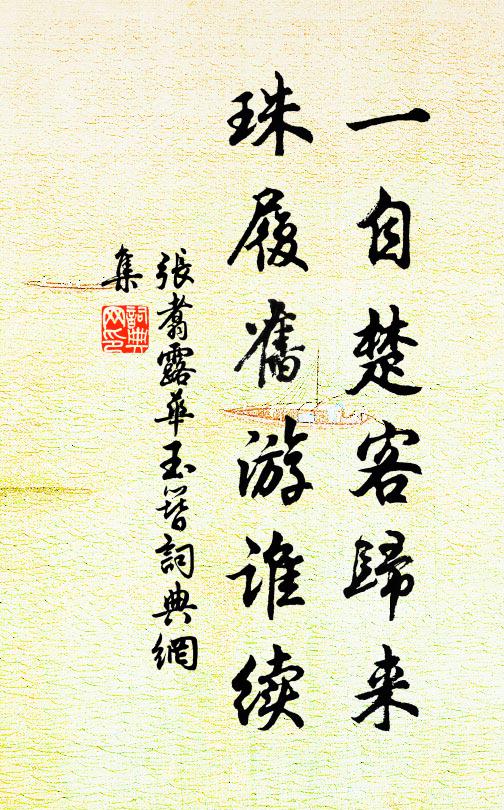 一自楚客歸来
珠履舊游谁续
張翥露華玉簪詞典網
集
詞典
网印